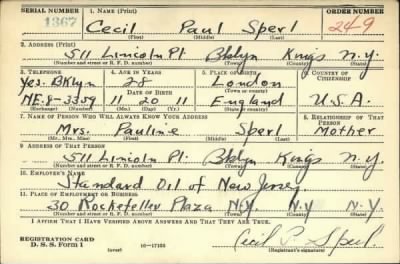 SERIAL NUMBER 1. NAME (Print) ORDER NUMBER
1367 Cecil Paul Sperl 249
(First) (Middle) (Last)
2. ADDRESS (Print)
511 Lincoln Pl. Bklyn Kings N.Y.
(Number and street or R. F. D. number) (Town) (County) (State)
3. TELEPHONE 4. AGE IN YEARS 5. PLACE OF BIRTH 6. COUNTRY OF CITIZENSHIP
Yes. BKlyn 28 London
DATE OF BIRTH (Town or county)
NE.8-3359 11 20 11 England U.S.A.
(Exchange) (Number) (Mo.) (Day) (Yr.) (State or country)
7. NAME OF PERSON WHO WILL ALWAYS KNOW YOUR ADDRESS 8. RELATIONSHIP OF THAT PERSON
Mrs. Pauline Sperl Mother
(Mr., Mrs., Miss) (First) (Middle) (Last)
9. ADDRESS OF THAT PERSON
511 Lincoln Pl. Bklyn Kings N.Y.
(Number and street or R. F. D. number) (Town) (County) (State)
10. EMPLOYER'S NAME
Standard Oil of New Jersey.
11. PLACE OF EMPLOYMENT OR BUSINESS
30 Rockefeller Plaza N.Y. N.Y. N.Y.
(Number and street or R. F. D. number) (Town) (County) (State)
I AFFIRM THAT I HAVE VERIFIED ABOVE ANSWERS AND THAT THEY ARE TRUE.
REGISTRATION CARD
D. S. S. Form 1 (over) 16—17105 Cecil P. Sperl
(Registrant's signature)